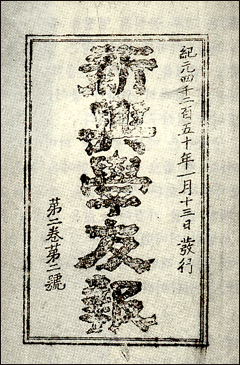 紀元四千二百五十年一月十三日 發行
新興學友報
第二卷第二號